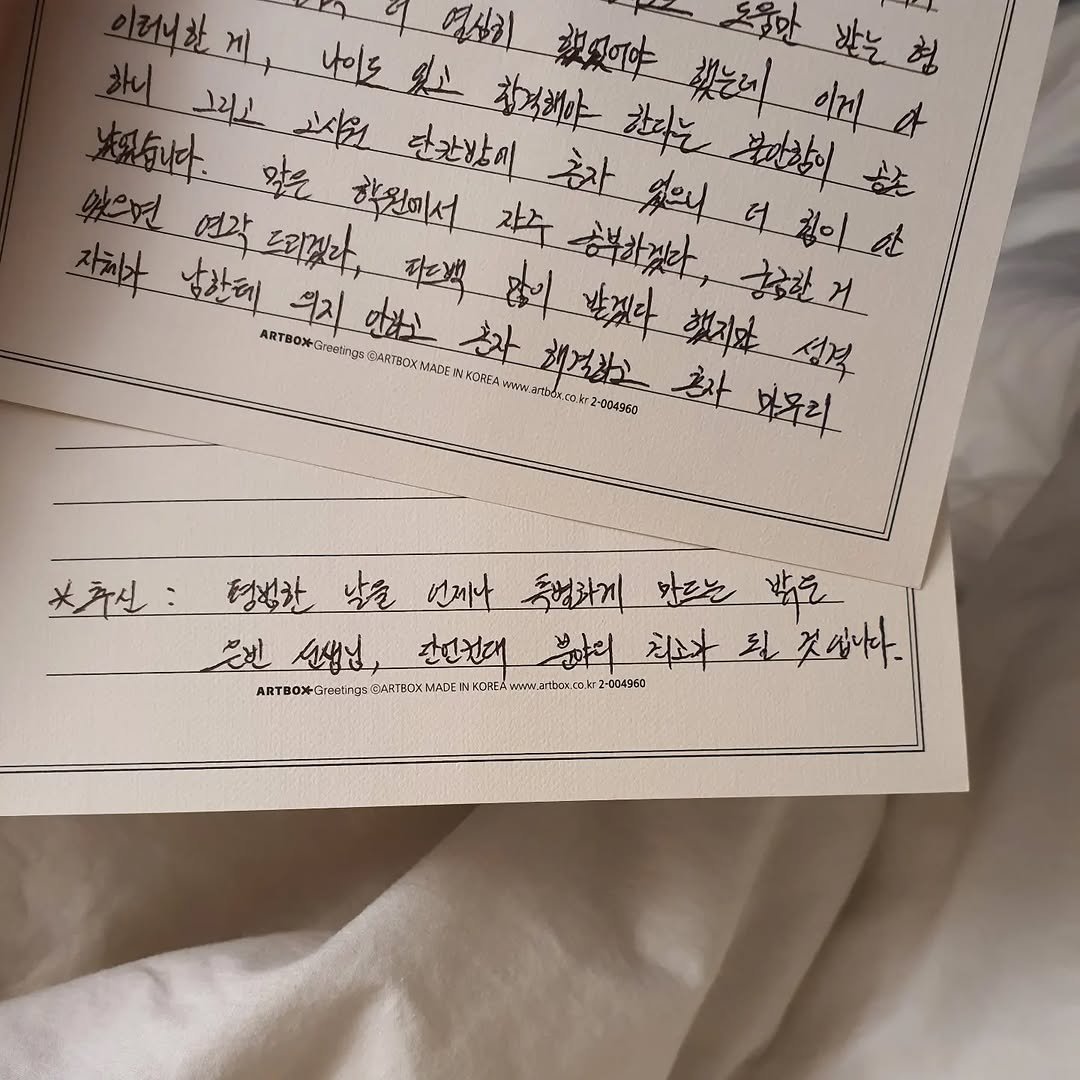 더 열심히 했었어야 했는데 이게 아
도움만 받는 형
이러니한 게, 나이도 있고 합격해야 한다는 불안함이 공존
하니 그리고 고시원 단칸방에 혼자 있으니 더 힘이 안
났었습니다. 말은 학원에서 자주 공부하겠다, 궁금한 거
있으면 연락드리겠다, 피드백 많이 받겠다 했지만 성격
자체가 남한테 의지 안하고 혼자 해결하고 혼자 마무리
ARTBOX Greetings ©ARTBOX MADE IN KOREA www.artbox.co.kr 2-004960
*추신 : 평범한 날을 언제나 특별하게 만드는
은빈 선생님, 단언컨대 분야의 최고가 될 것입니다.
ARTBOX Greetings ©ARTBOX MADE IN KOREA www.artbox.co.kr 2-004960